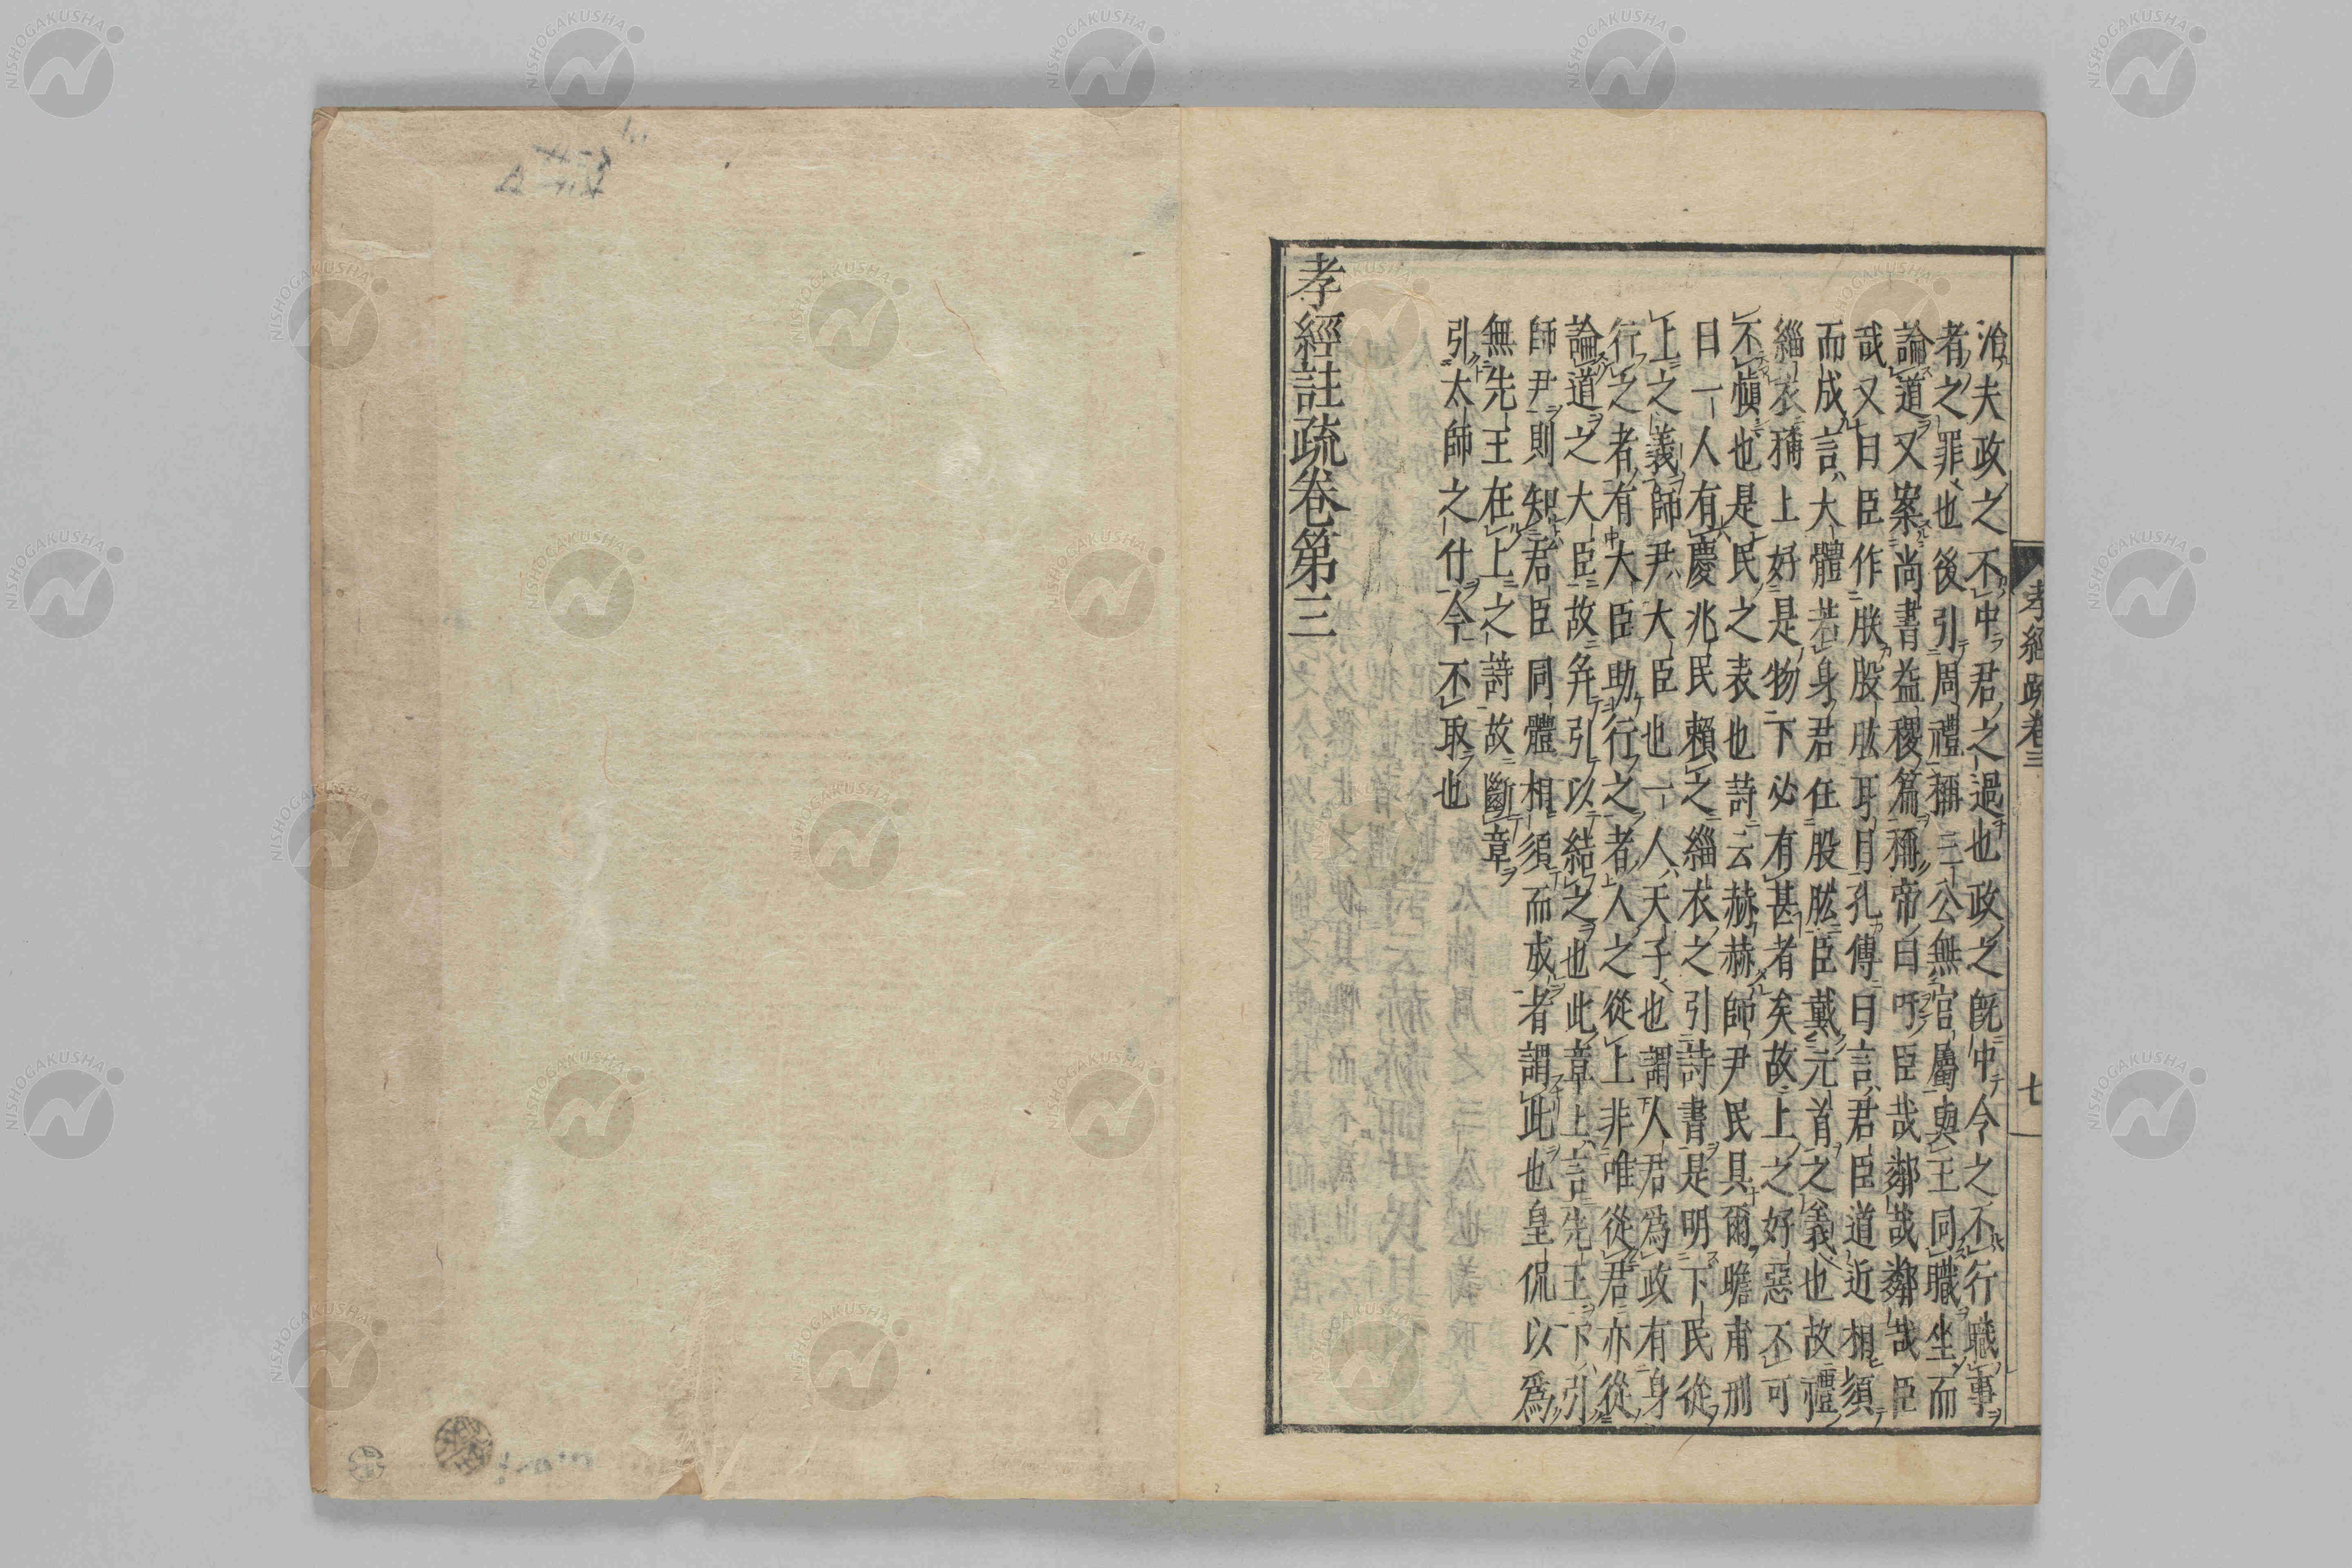 洽夫政之不中君之過也政之既中令之不行職事
者之罪也後引周禮稱三公無官屬與王同職坐而
論道又案尚書益稷篇稱帝曰吁臣哉鄰哉鄰哉臣
哉又曰臣作朕股肱耳目孔傳曰言君臣道近相須
而成言大體若身君任股肱臣戴元首之義也故禮
緇衣稱上好是物下必有甚者矣故上之好惡不可
不慎也是民之表也詩云赫赫師尹民具爾瞻甫刑
曰一人有慶兆民賴之緇衣之引詩書是明下民從
上之義師尹大臣也一人天子也謂人君為政有身
行之者有大臣助行之者人之從上非唯從君亦從
論道之大臣故并引以結之也此章上言先王下引
師尹則知君臣同體相須而成者謂此也皇侃以為
無先王在上之詩故斷章
引太師之什今不取也
孝經註疏卷第三
孝經疏卷三
七
NISHOGAKUSHA